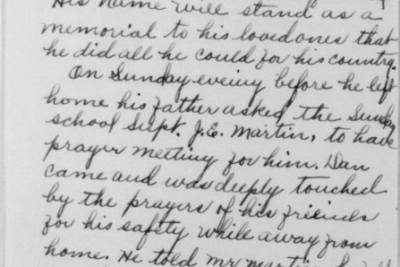 His name will stand as a
memorial to his loved ones that
he did all he could for his country.
On Sunday eveing before he left
home his father asked the Sunday
school Supt. J.E. Martin, to have
prayer meeting for him. Dan
came and was deeply touched
by the prayers of his friends
for his safety while away from
home. He told mr martin